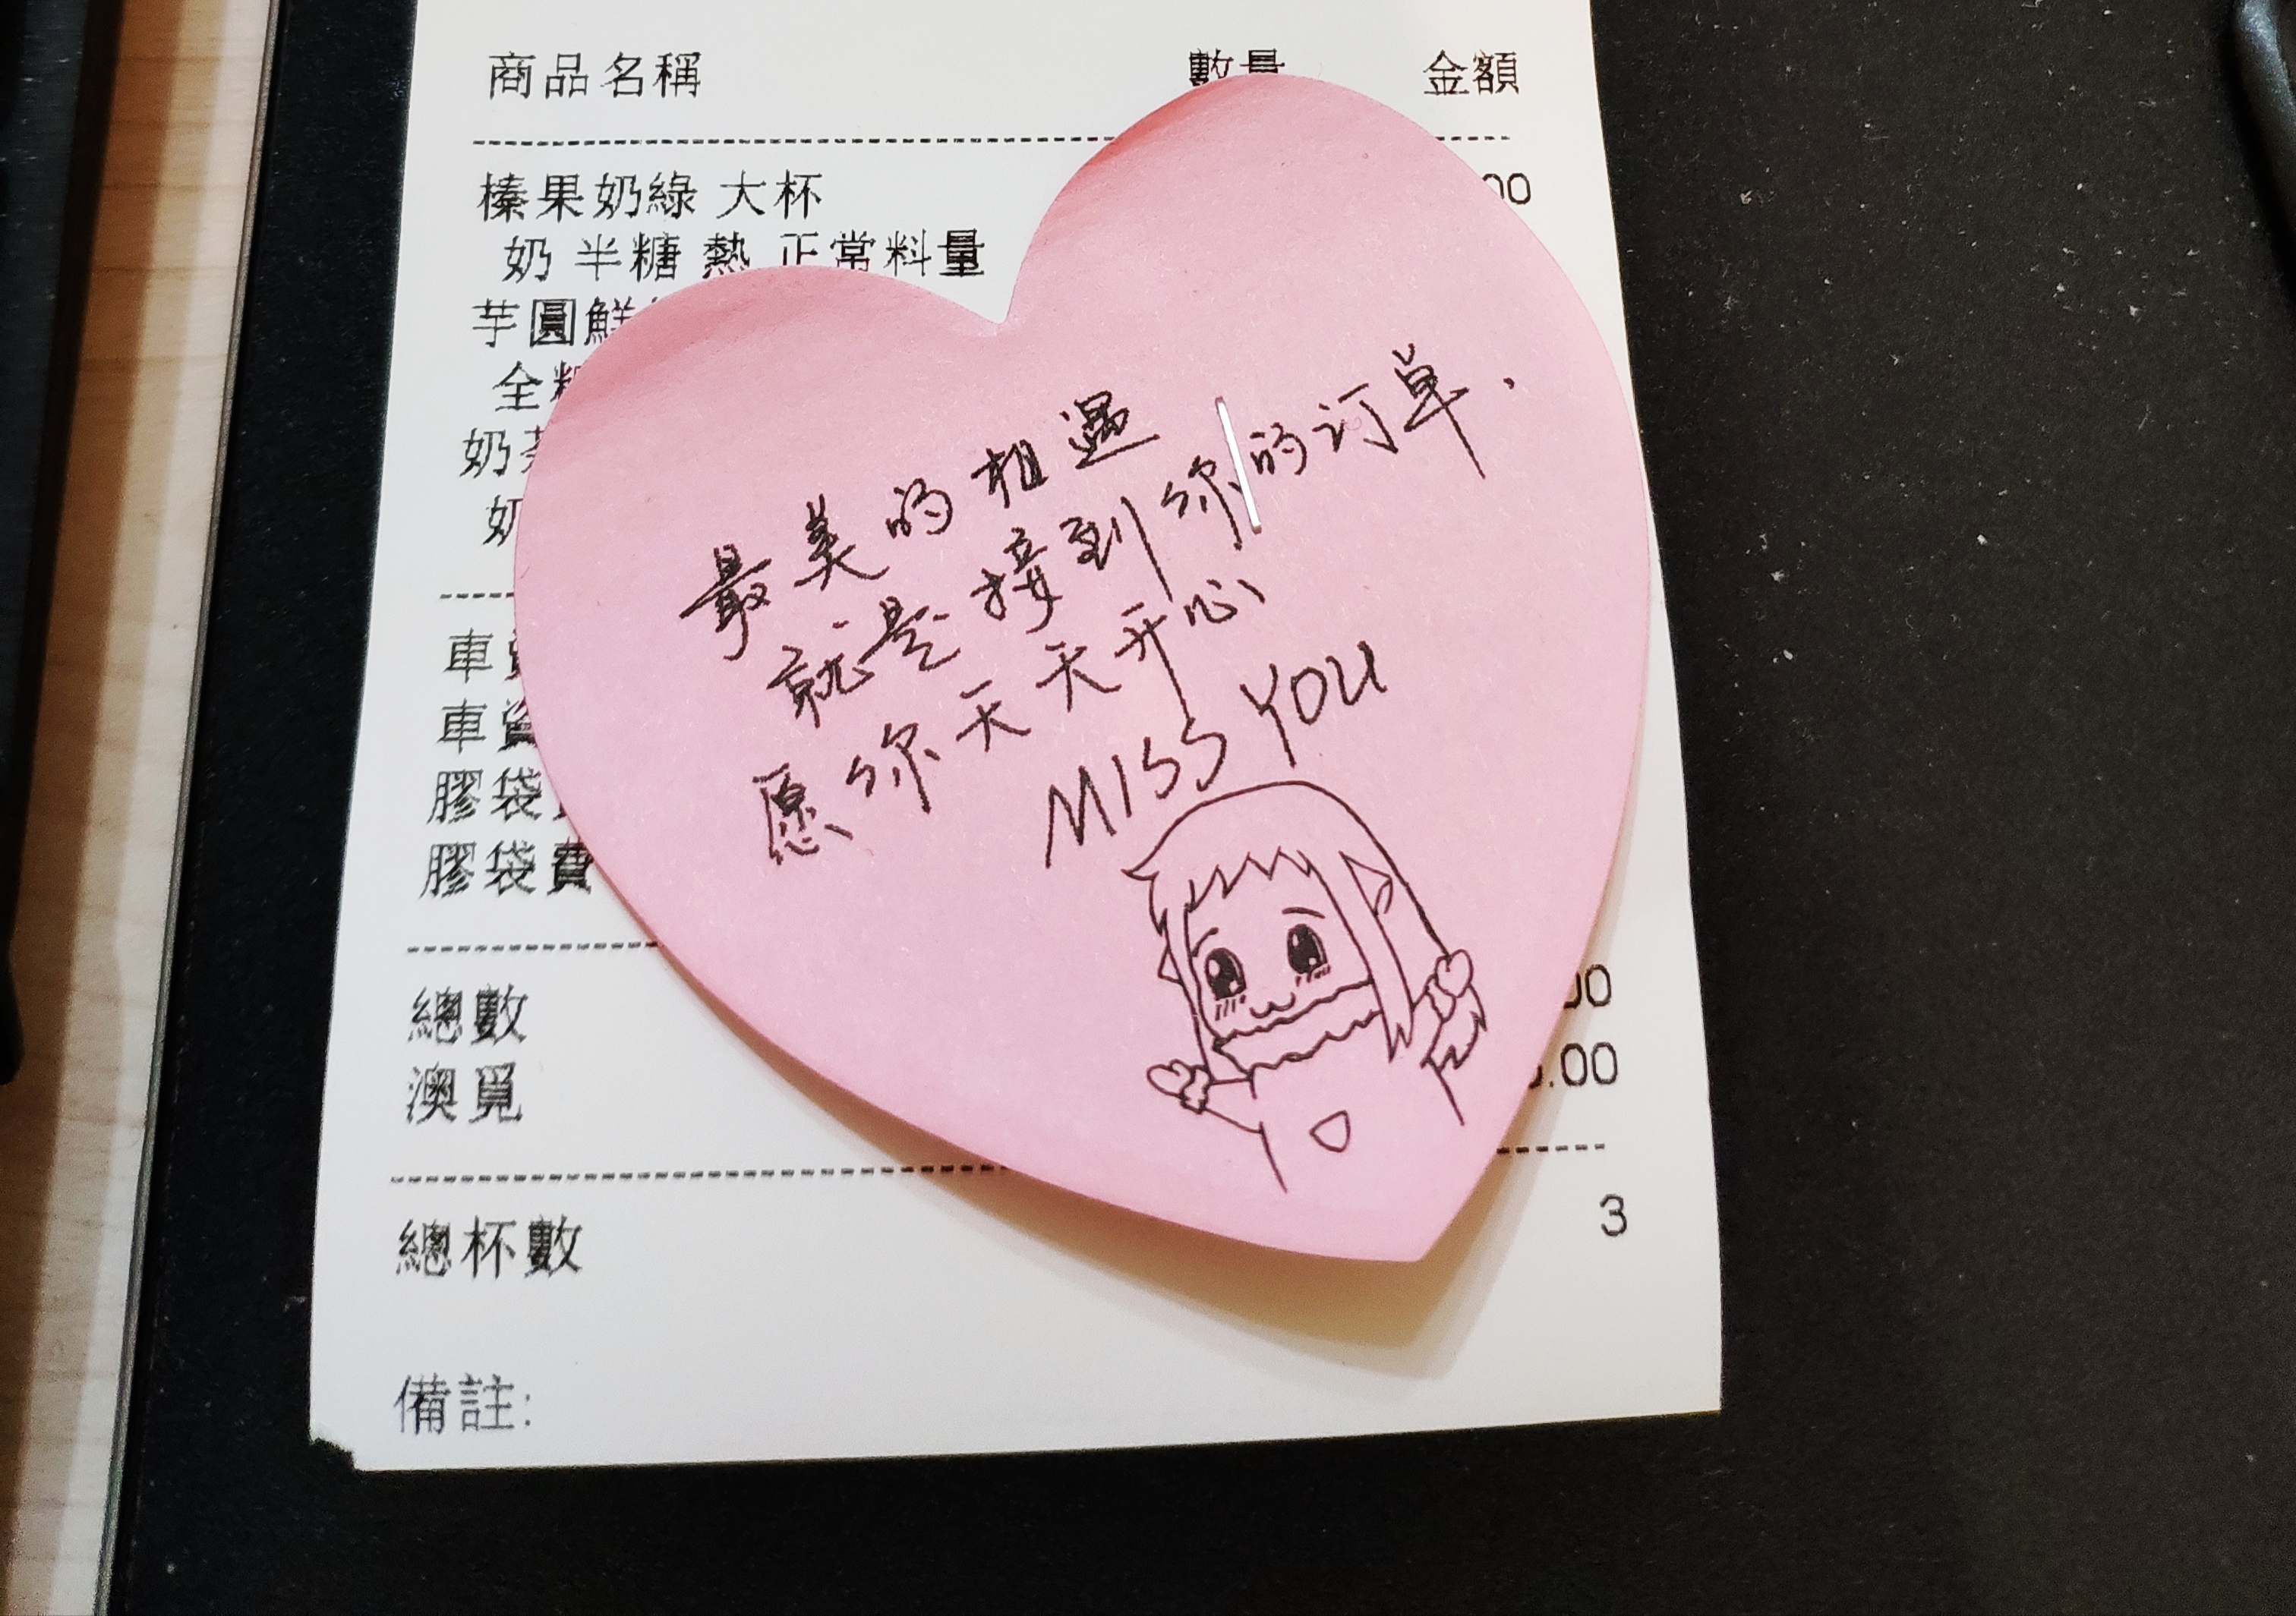 商品名稱 數量 金額
榛果奶綠 大杯 00
奶 半糖 熱 正常料量
芋圓鮮
全
奶
奶
最美的相遇
就是接到你的订单.
愿你天天开心
MISS YOU
車
車資
膠袋
膠袋費
總數 00
澳覓 .00
總杯數 3
備註: